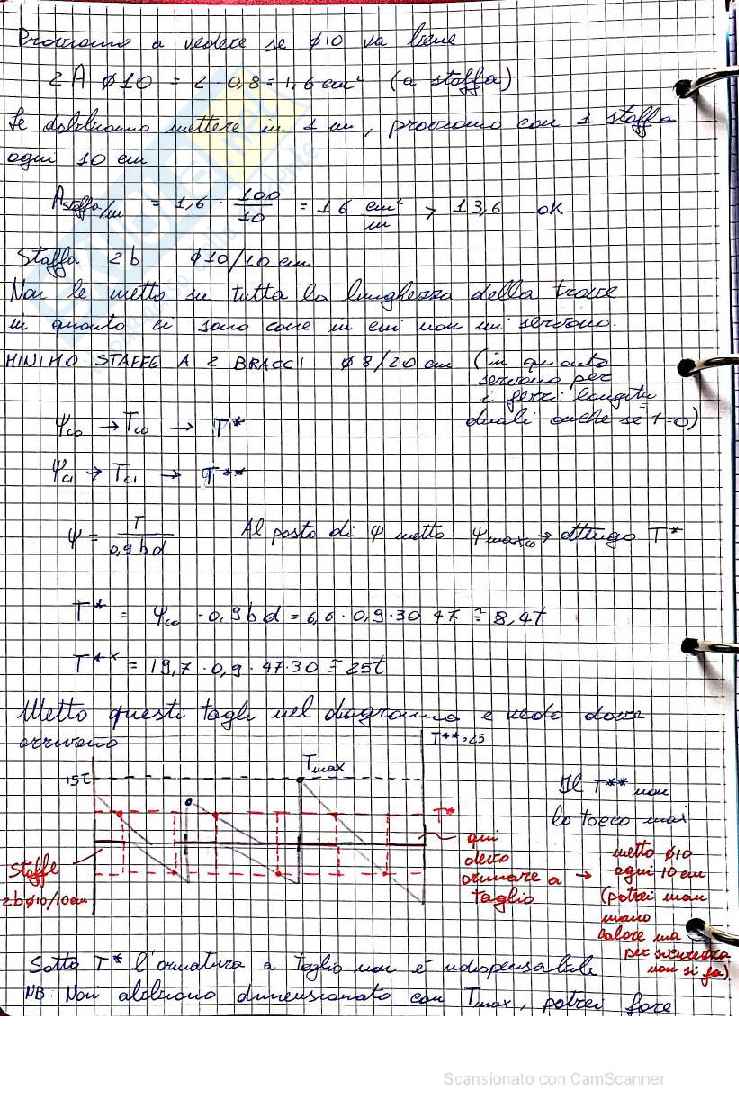 Proviamo a vedere se φ10 va bene
2 A φ10 = 2 · 0,8 = 1,6 cm² (a staffa)
Le dobbiamo mettere in 1 m, proviamo con 1 staffa
ogni 10 cm
A staffa/m = 1,6 · 100/10 = 16 cm²/m > 13,6 OK
Staffa 2b φ10/10 cm
Non le metto su tutta la lunghezza della trave
in quanto ci sono zone in cui non mi servono.
MINIMO STAFFE A 2 BRACCI φ8/20 cm (in quanto
servono per
i ferri longitu
dinali anche se T=0)
ψco → Tco → T*
ψc1 → Tc1 → T**
ψ = T/0,9bd Al posto di ψ metto ψmaxco → ottengo T*
T* = ψco · 0,9bd = 6,6 · 0,9 · 30 · 47 ≅ 8,4t
T** = 19,7 · 0,9 · 47 · 30 ≅ 25t
Metto questi tagli nel diagramma e vedo dove
arrivano
T**=25
15t
Tmax
Il T** non
lo tocco mai
T*
qui
devo
armare a
taglio
→ metto φ10
ogni 10 cm
(potrei man
mano
calare ma
per sicurezza
non si fa)
Staffe
2bφ10/10cm
Sotto T* l'armatura a taglio non è indispensabile
NB: Non abbiamo dimensionato con Tmax, potrei fare
Scansionato con CamScanner